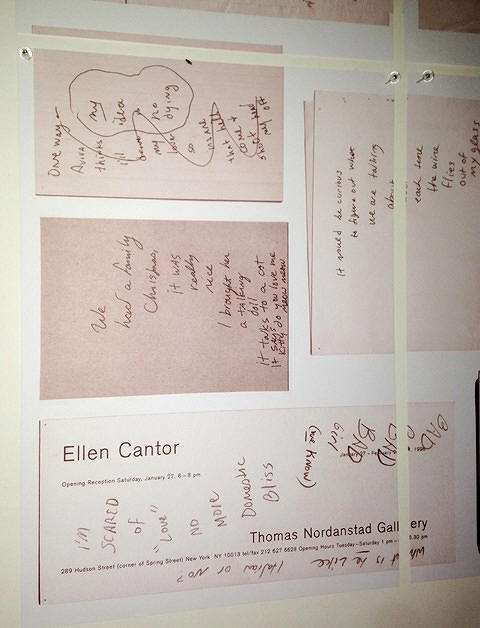 One way
Avira
thinks
I'll
my
idea
my no
lover dying
so
insane
that he'll
come &
cut my
off
It would be curious
to figure out what
we are talking
about
each time
the wine
flies
out of
my glass
We
had a family
Christmas,
it was
really
nice
I brought her
a talking
doll
it talks to a cat
it says
kitty do you love me
meow meow
Ellen Cantor
Opening Reception Saturday, January 27, 6–8 pm
I'm
SCARED
of
"LOVE"
NO
MORE
DOMESTIC
BLISS
(we know)
BAD
Girl
BAD
BAD
Thomas Nordanstad Gallery
289 Hudson Street (corner of Spring Street) New York NY 10013 tel/fax 212 627 6628 Opening Hours Tuesday–Saturday 1 pm
What is he Like
Italian or NO?